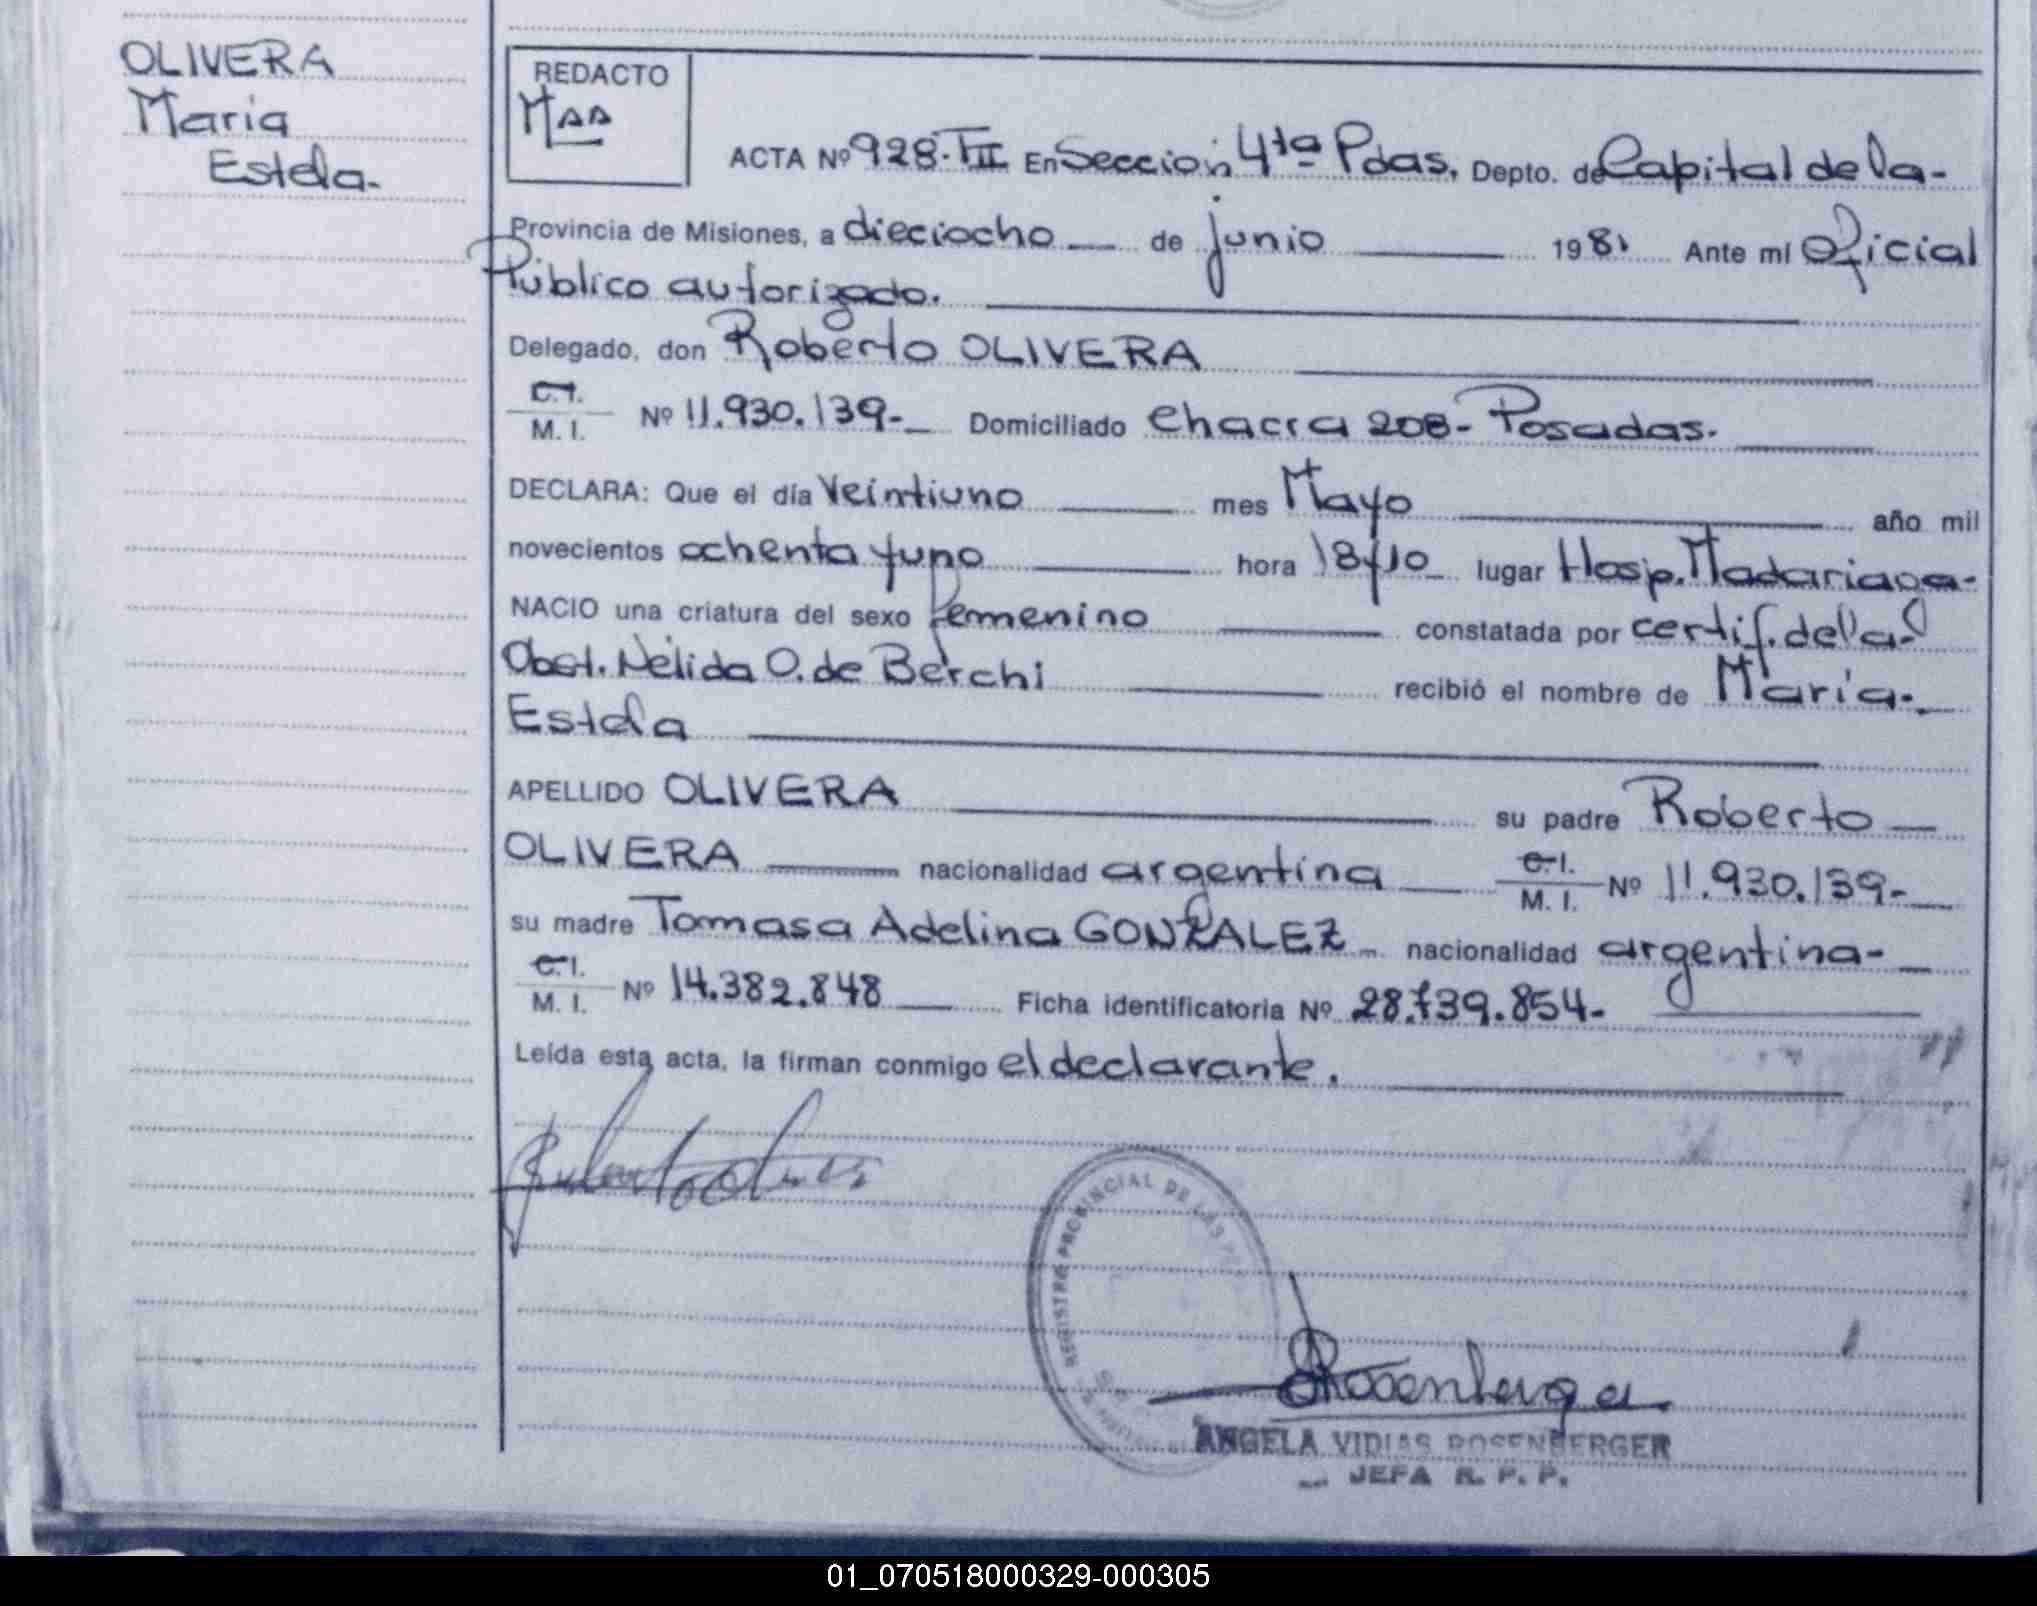 OLIVERA
Maria
Estela.-
REDACTO
ACTA Nº 928. TII En Sección 4ta Pdas. Depto. de Capital de la-
Provincia de Misiones, a dieciocho de junio 1981 Ante mí Oficial
Público autorizado.
Delegado, don Roberto OLIVERA
C.I.
M. I. Nº 11.930.139.- Domiciliado Chacra 208- Posadas.
DECLARA: Que el día Veintiuno mes Mayo año mil
novecientos ochenta y uno hora 18y10 lugar Hosp. Madariaga-
NACIO una criatura del sexo femenino constatada por certif. de la-
Obst. Nélida O. de Berchi recibió el nombre de María-
Estela
APELLIDO OLIVERA su padre Roberto
OLIVERA nacionalidad argentina C.I. M. I. Nº 11.930.139-
su madre Tomasa Adelina GONZALEZ nacionalidad argentina-
C.I.
M. I. Nº 14.382.848 Ficha identificatoria Nº 28.739.854-
Leída esta acta, la firman conmigo el declarante.
REGISTRO PROVINCIAL DE LAS
Rosenberger
ANGELA VIDIAS ROSENBERGER
JEFA R. P. P.
01_070518000329-000305